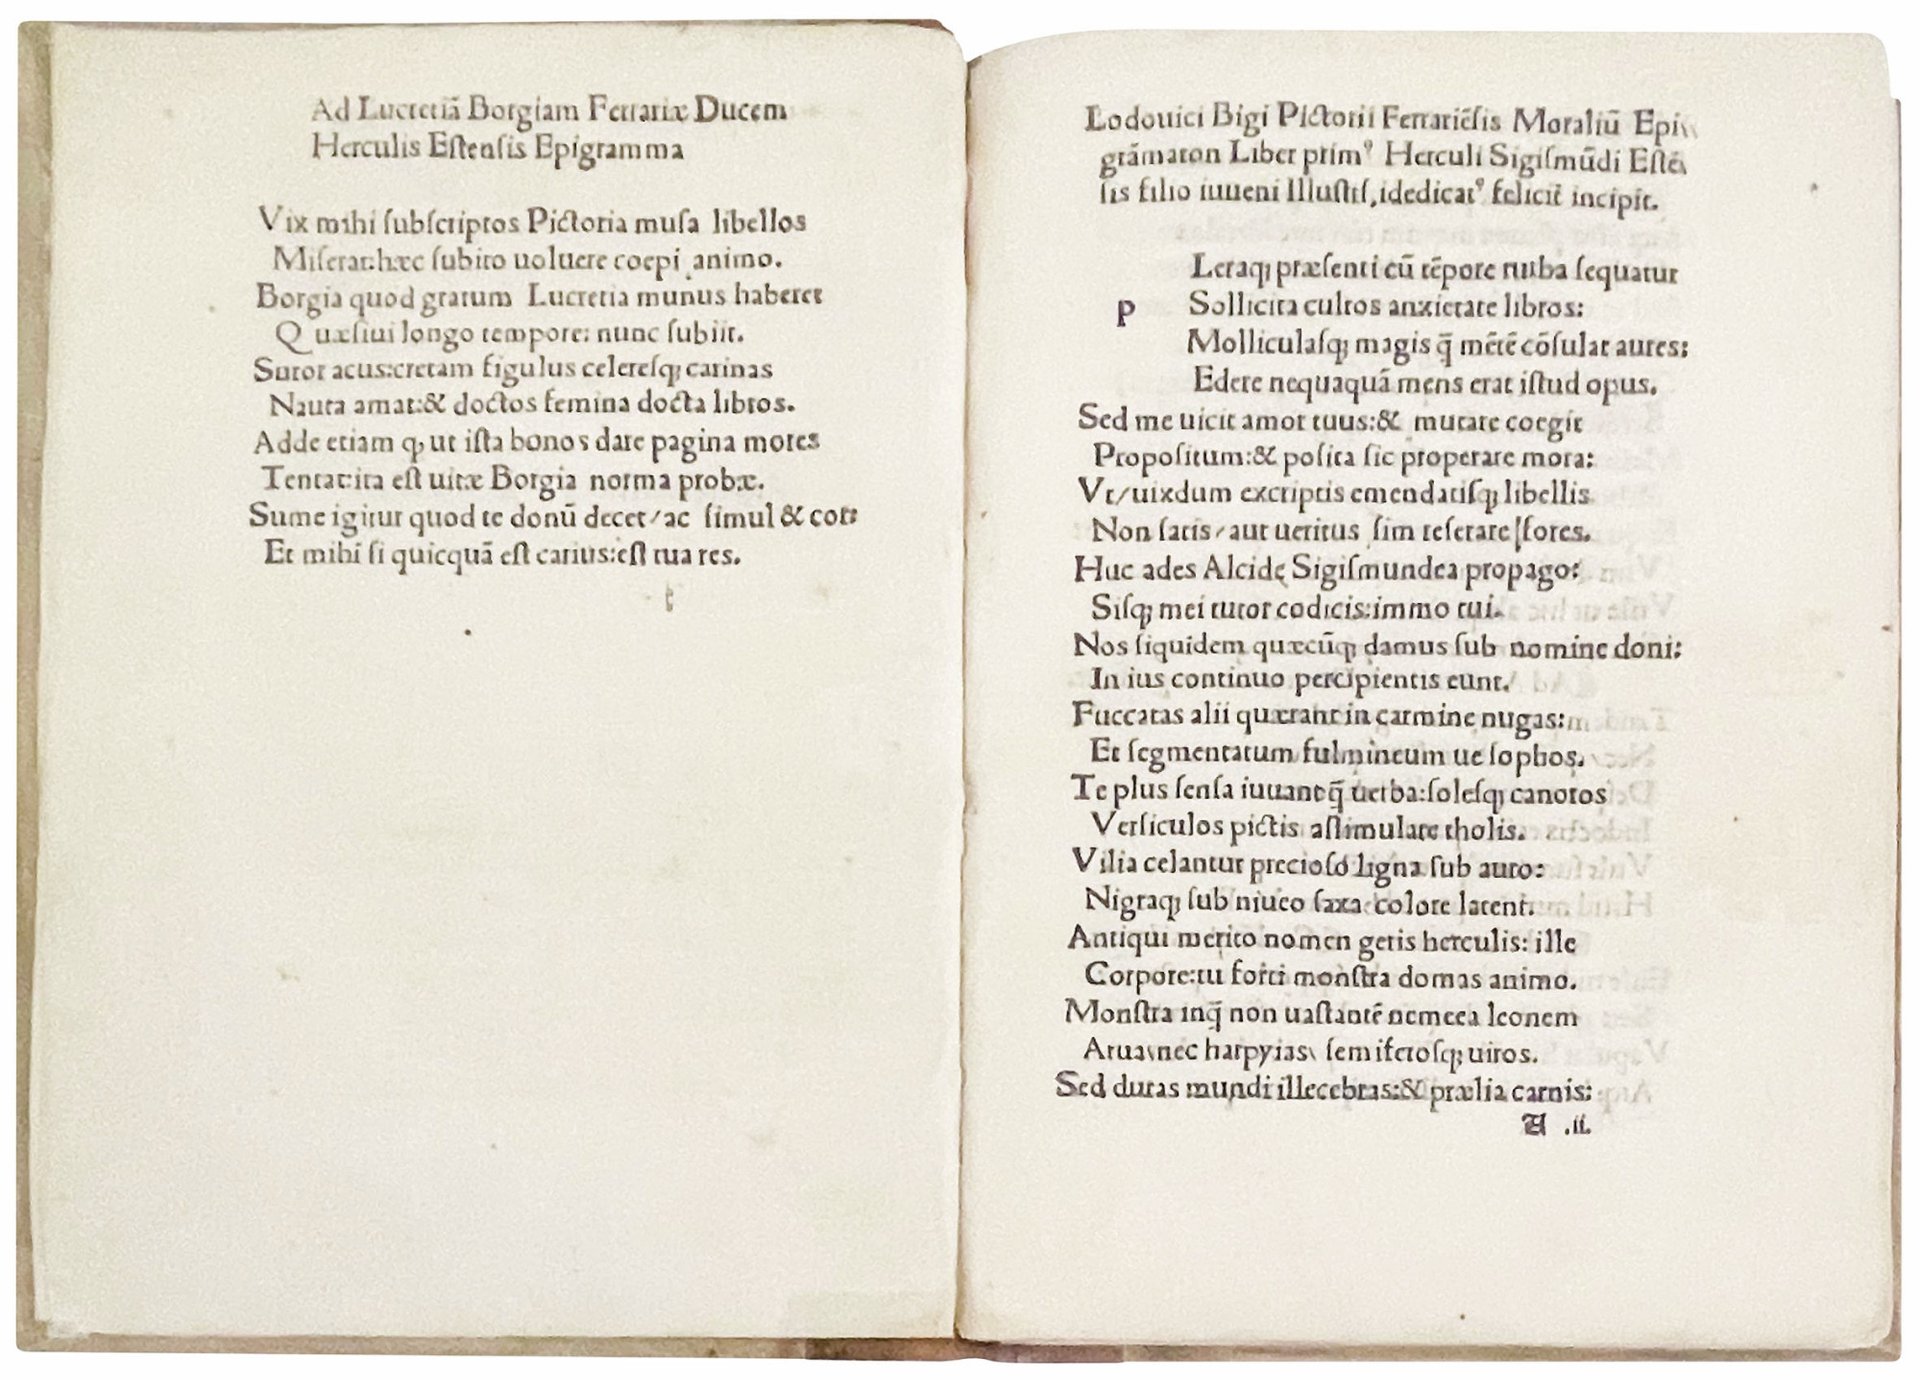 Ad Lucretiā Borgiam Ferrariæ Ducem
Herculis Eſtenſis Epigramma
Vix mihi ſubſcriptos Pictoria muſa libellos
Miſerat:hæc ſubito uoluere coepi animo.
Borgia quod gratum Lucretia munus haberet
Quæſiui longo tempore: nunc ſubiit.
Sutor acus:cretam figulus celereſqꝫ carinas
Nauta amat:& doctos femina docta libros.
Adde etiam ꝙ ut iſta bonos dare pagina mores
Tentat:ita eſt uitæ Borgia norma probæ.
Sume igitur quod te donū decet/ac ſimul & cor:
Et mihi ſi quicquā eſt carius:eſt tua res.
Lodouici Bigi Pictorii Ferrariēſis Moraliū Epi
grāmaton Liber primꝰ Herculi Sigiſmūdi Eſtē
ſis filio iuueni Illuſtriſ, idedicatꝰ feliciť incipit.
Leraqꝫ præſenti cū tēpore turba ſequatur
p Sollicita cultos anxietate libros:
Molliculaſqꝫ magis q̄ mētē cōſulat aures:
Edere nequaquā mens erat iſtud opus.
Sed me uicit amor tuus:& mutare coegit
Propoſitum:& poſita ſic properare mora:
Vt/uixdum excriptis emendatiſqꝫ libellis
Non ſatis/aut ueritus ſim reſerare fores.
Huc ades Alcidę Sigiſmundea propago:
Siſqꝫ mei tutor codicis:immo tui.
Nos ſiquidem quæcūqꝫ damus ſub nomine doni:
In ius continuo percipientis eunt.
Fuccatas alii quærant in carmine nugas:
Et ſegmentatum fulmineum ue ſophos.
Te plus ſenſa iuuant q̄ uerba:ſoleſqꝫ canoros
Verſiculos pictis aſſimulare tholis.
Vilia celantur precioſo ligna ſub auro:
Nigraqꝫ ſub niueo ſaxa colore latent.
Antiqui merito nomen geris herculis: ille
Corpore:tu forti monſtra domas animo.
Monſtra inq̄ non uaſtantē nemeea leonem
Arua\nec harpyias\ ſemiferoſqꝫ uiros.
Sed duras mundi illecebras:& prælia carnis:
A .ii.